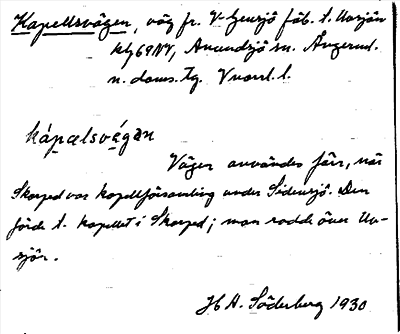 Kapellsvägen, väg fr. V-Gensjö fäb. t. Uvsjön
kbl 69NV, Anundsjö sn. Ångerml.
n. doms. tg. Vnorrl. l.
kápælsvǽgən
Vägen användes förr, när
Skorped var kapellförsamling under Sidensjö. Den
förde t. kapellet i Skorped; man rodde över Uv-
sjön.
H A. Söderberg 1930